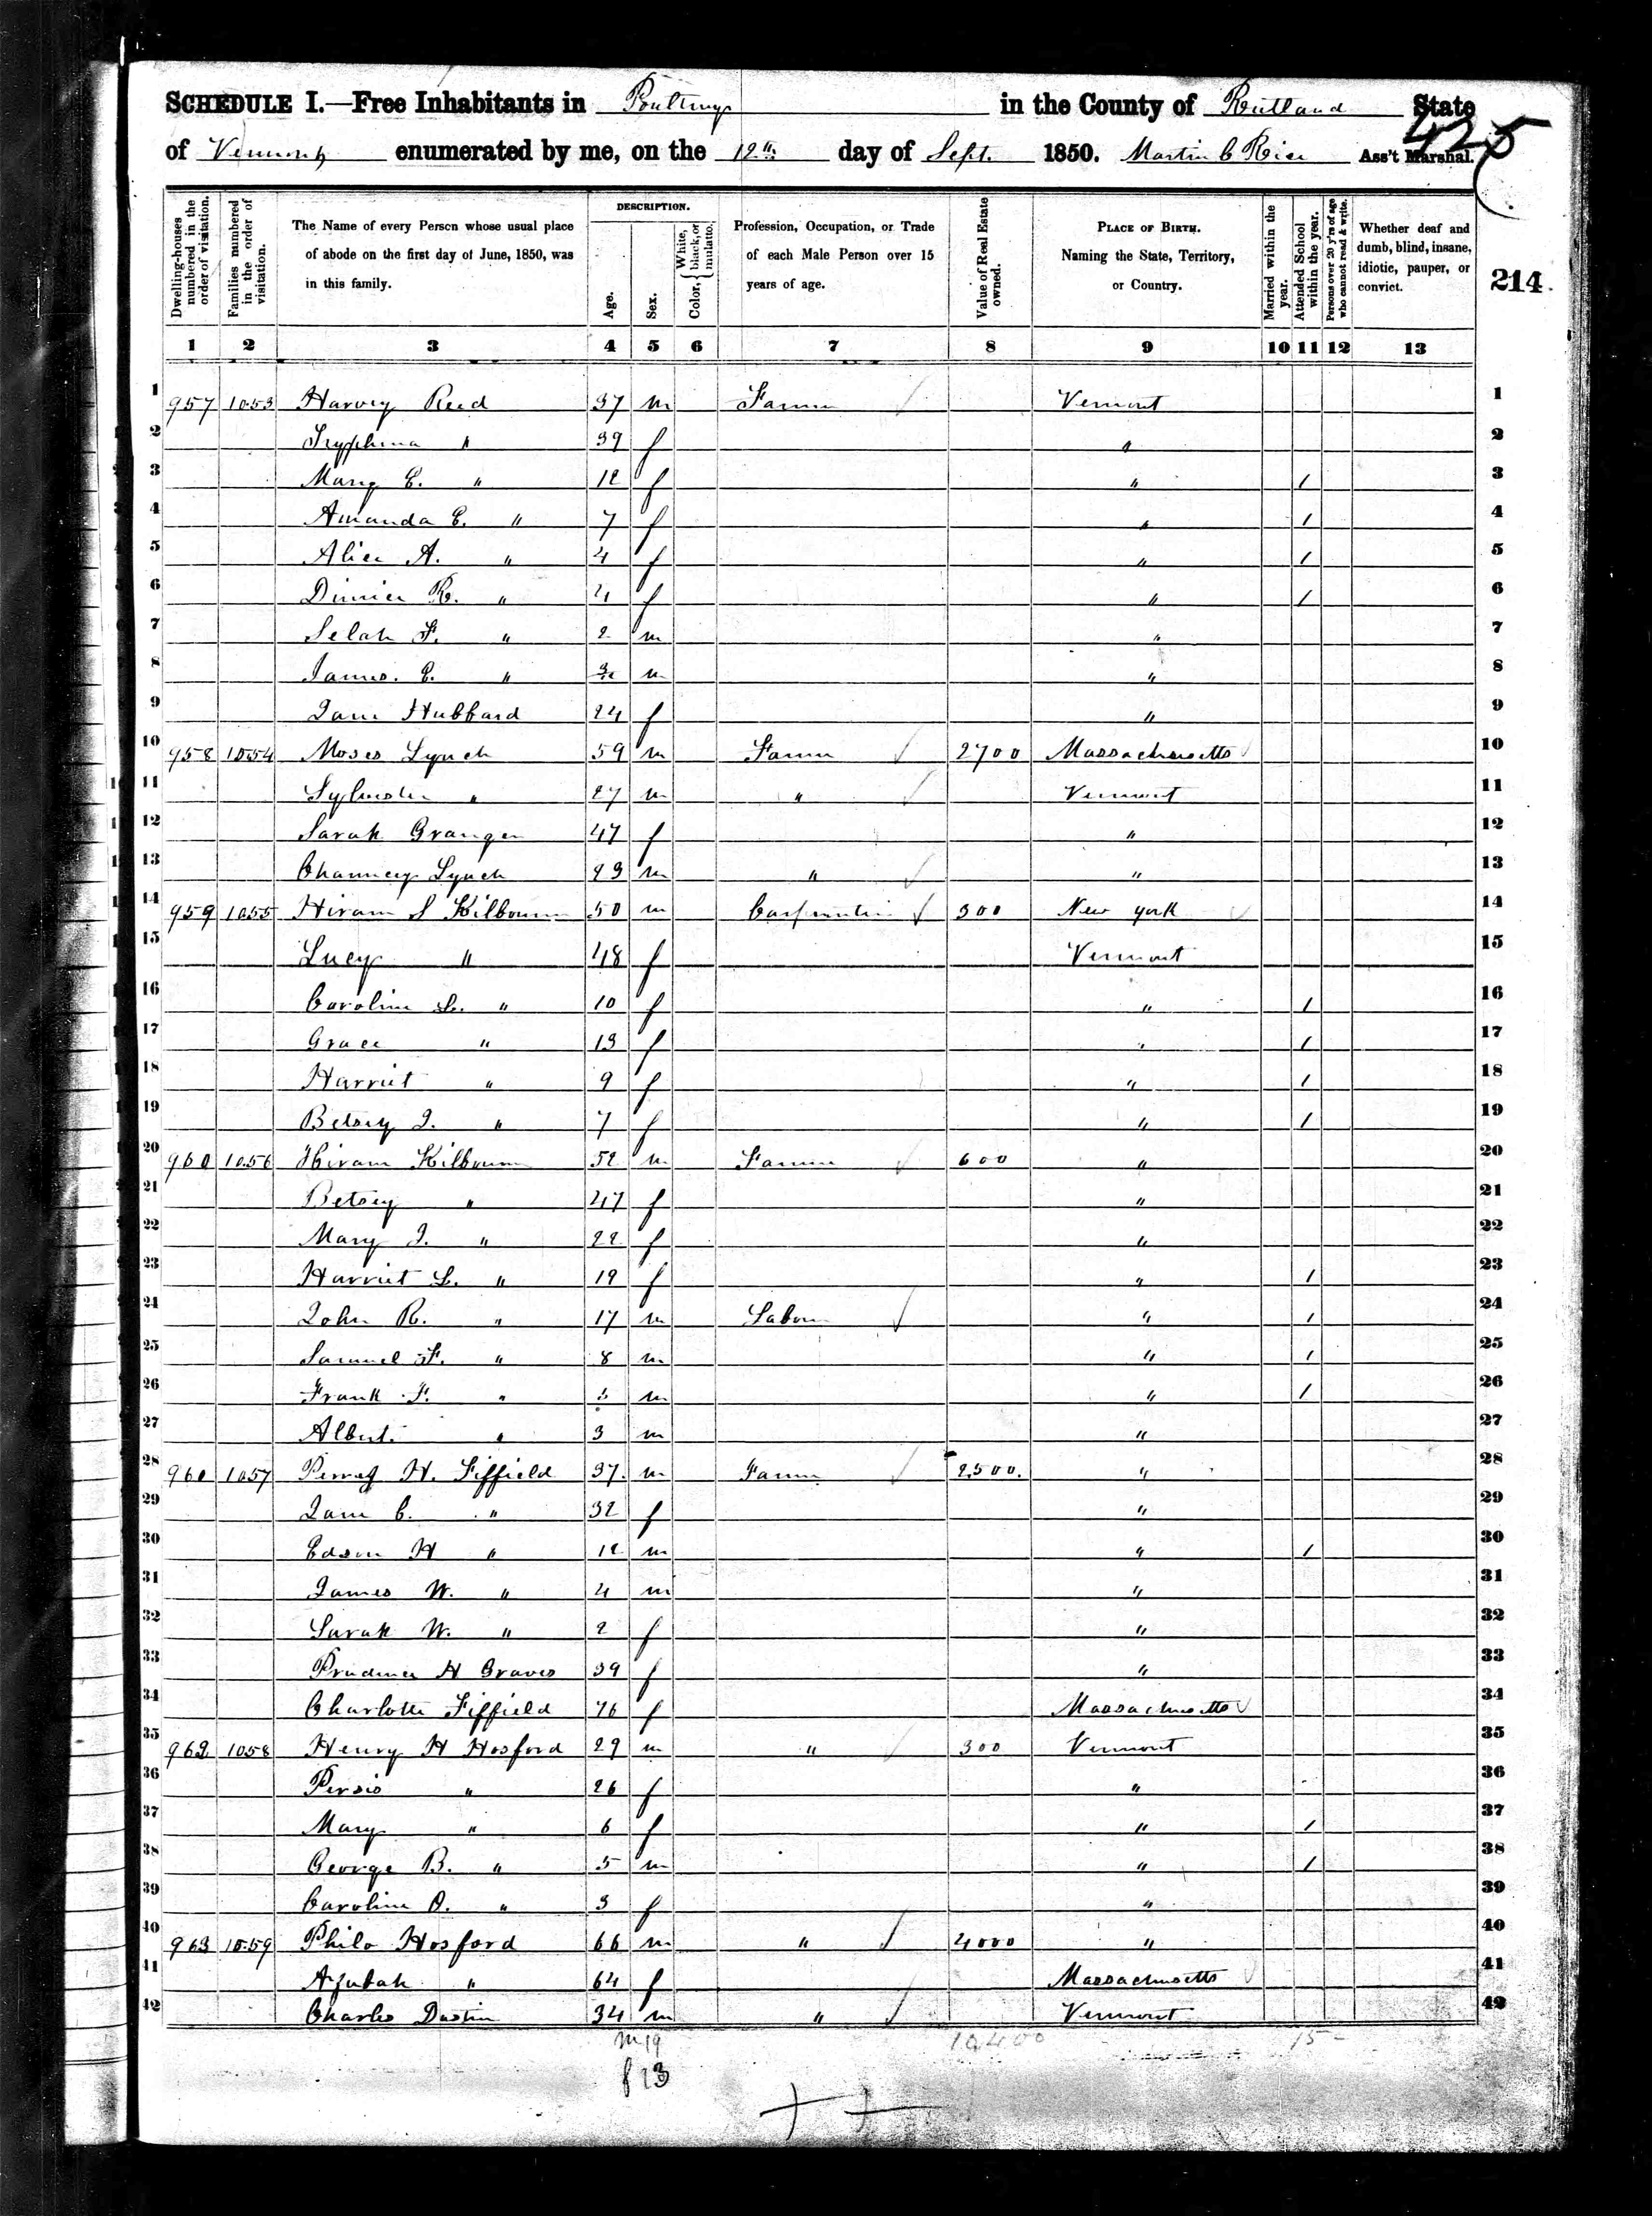 SCHEDULE I.—Free Inhabitants in Poultney in the County of Rutland State
of Vermont enumerated by me, on the 12th day of Sept. 1850. Martin C Rice Ass't Marshal.
425
214
Dwelling-houses numbered in the order of visitation.
Families numbered in the order of visitation.
The Name of every Person whose usual place of abode on the first day of June, 1850, was in this family.
DESCRIPTION.
Age.
Sex.
Color, { White, black, or mulatto.
Profession, Occupation, or Trade of each Male Person over 15 years of age.
Value of Real Estate owned.
PLACE OF BIRTH. Naming the State, Territory, or Country.
Married within the year.
Attended School within the year.
Persons over 20 y'rs of age who cannot read & write.
Whether deaf and dumb, blind, insane, idiotic, pauper, or convict.
1 2 3 4 5 6 7 8 9 10 11 12 13
1 957 1053 Harvey Reed 37 m Farmer Vermont 1
2 Tryphena " 39 f " 2
3 Mary E. " 12 f " / 3
4 Amanda E. " 7 f " / 4
5 Alice A. " 4 f " / 5
6 R. " 4 f " / 6
7 Selah F. " 2 m " 7
8 James. E. " m " 8
9 Jane Hubbard 24 f " 9
10 958 1054 Moses Lynch 59 m Farmer 2700 Massachusetts 10
11 Sylvester " 27 m " Vermont 11
12 Sarah Granger 47 f " 12
13 Chauncey Lynch 23 m " " 13
14 959 1055 Hiram S Kilbourn 50 m Carpenter 300 New York 14
15 Lucy " 48 f Vermont 15
16 Caroline L. " 10 f " / 16
17 Grace " 13 f " / 17
18 Harriet " 9 f " / 18
19 Betsey J. " 7 f " / 19
20 960 1056 Hiram Kilbourn 52 m Farmer 600 " 20
21 Betsey " 47 f " 21
22 Mary J. " 22 f " 22
23 Harriet L. " 19 f " / 23
24 John R. " 17 m Labour " / 24
25 Samuel F. " 8 m " / 25
26 Frank F. " m " / 26
27 Albert. " 3 m " 27
28 960 1057 H. Fiffield 37. m Farmer 2,500. " 28
29 Jane C. " 32 f " 29
30 Edson H " 12 m " / 30
31 James W. " 4 m " 31
32 Sarah W. " 2 f " 32
33 Prudence H Graves 39 f " 33
34 Charlotte Fiffield 76 f Massachusetts 34
35 962 1058 Henry H Hosford 29 m " 300 Vermont 35
36 Persis " 26 f " 36
37 Mary " 6 f " / 37
38 George B. " 5 m " / 38
39 Caroline O. " 3 f " 39
40 963 1059 Philo Hosford 66 m " 4000 " 40
41 Azubah " 64 f Massachusetts 41
42 Charles Dustin 34 m " Vermont 42
m 19 10,400 15
f 23